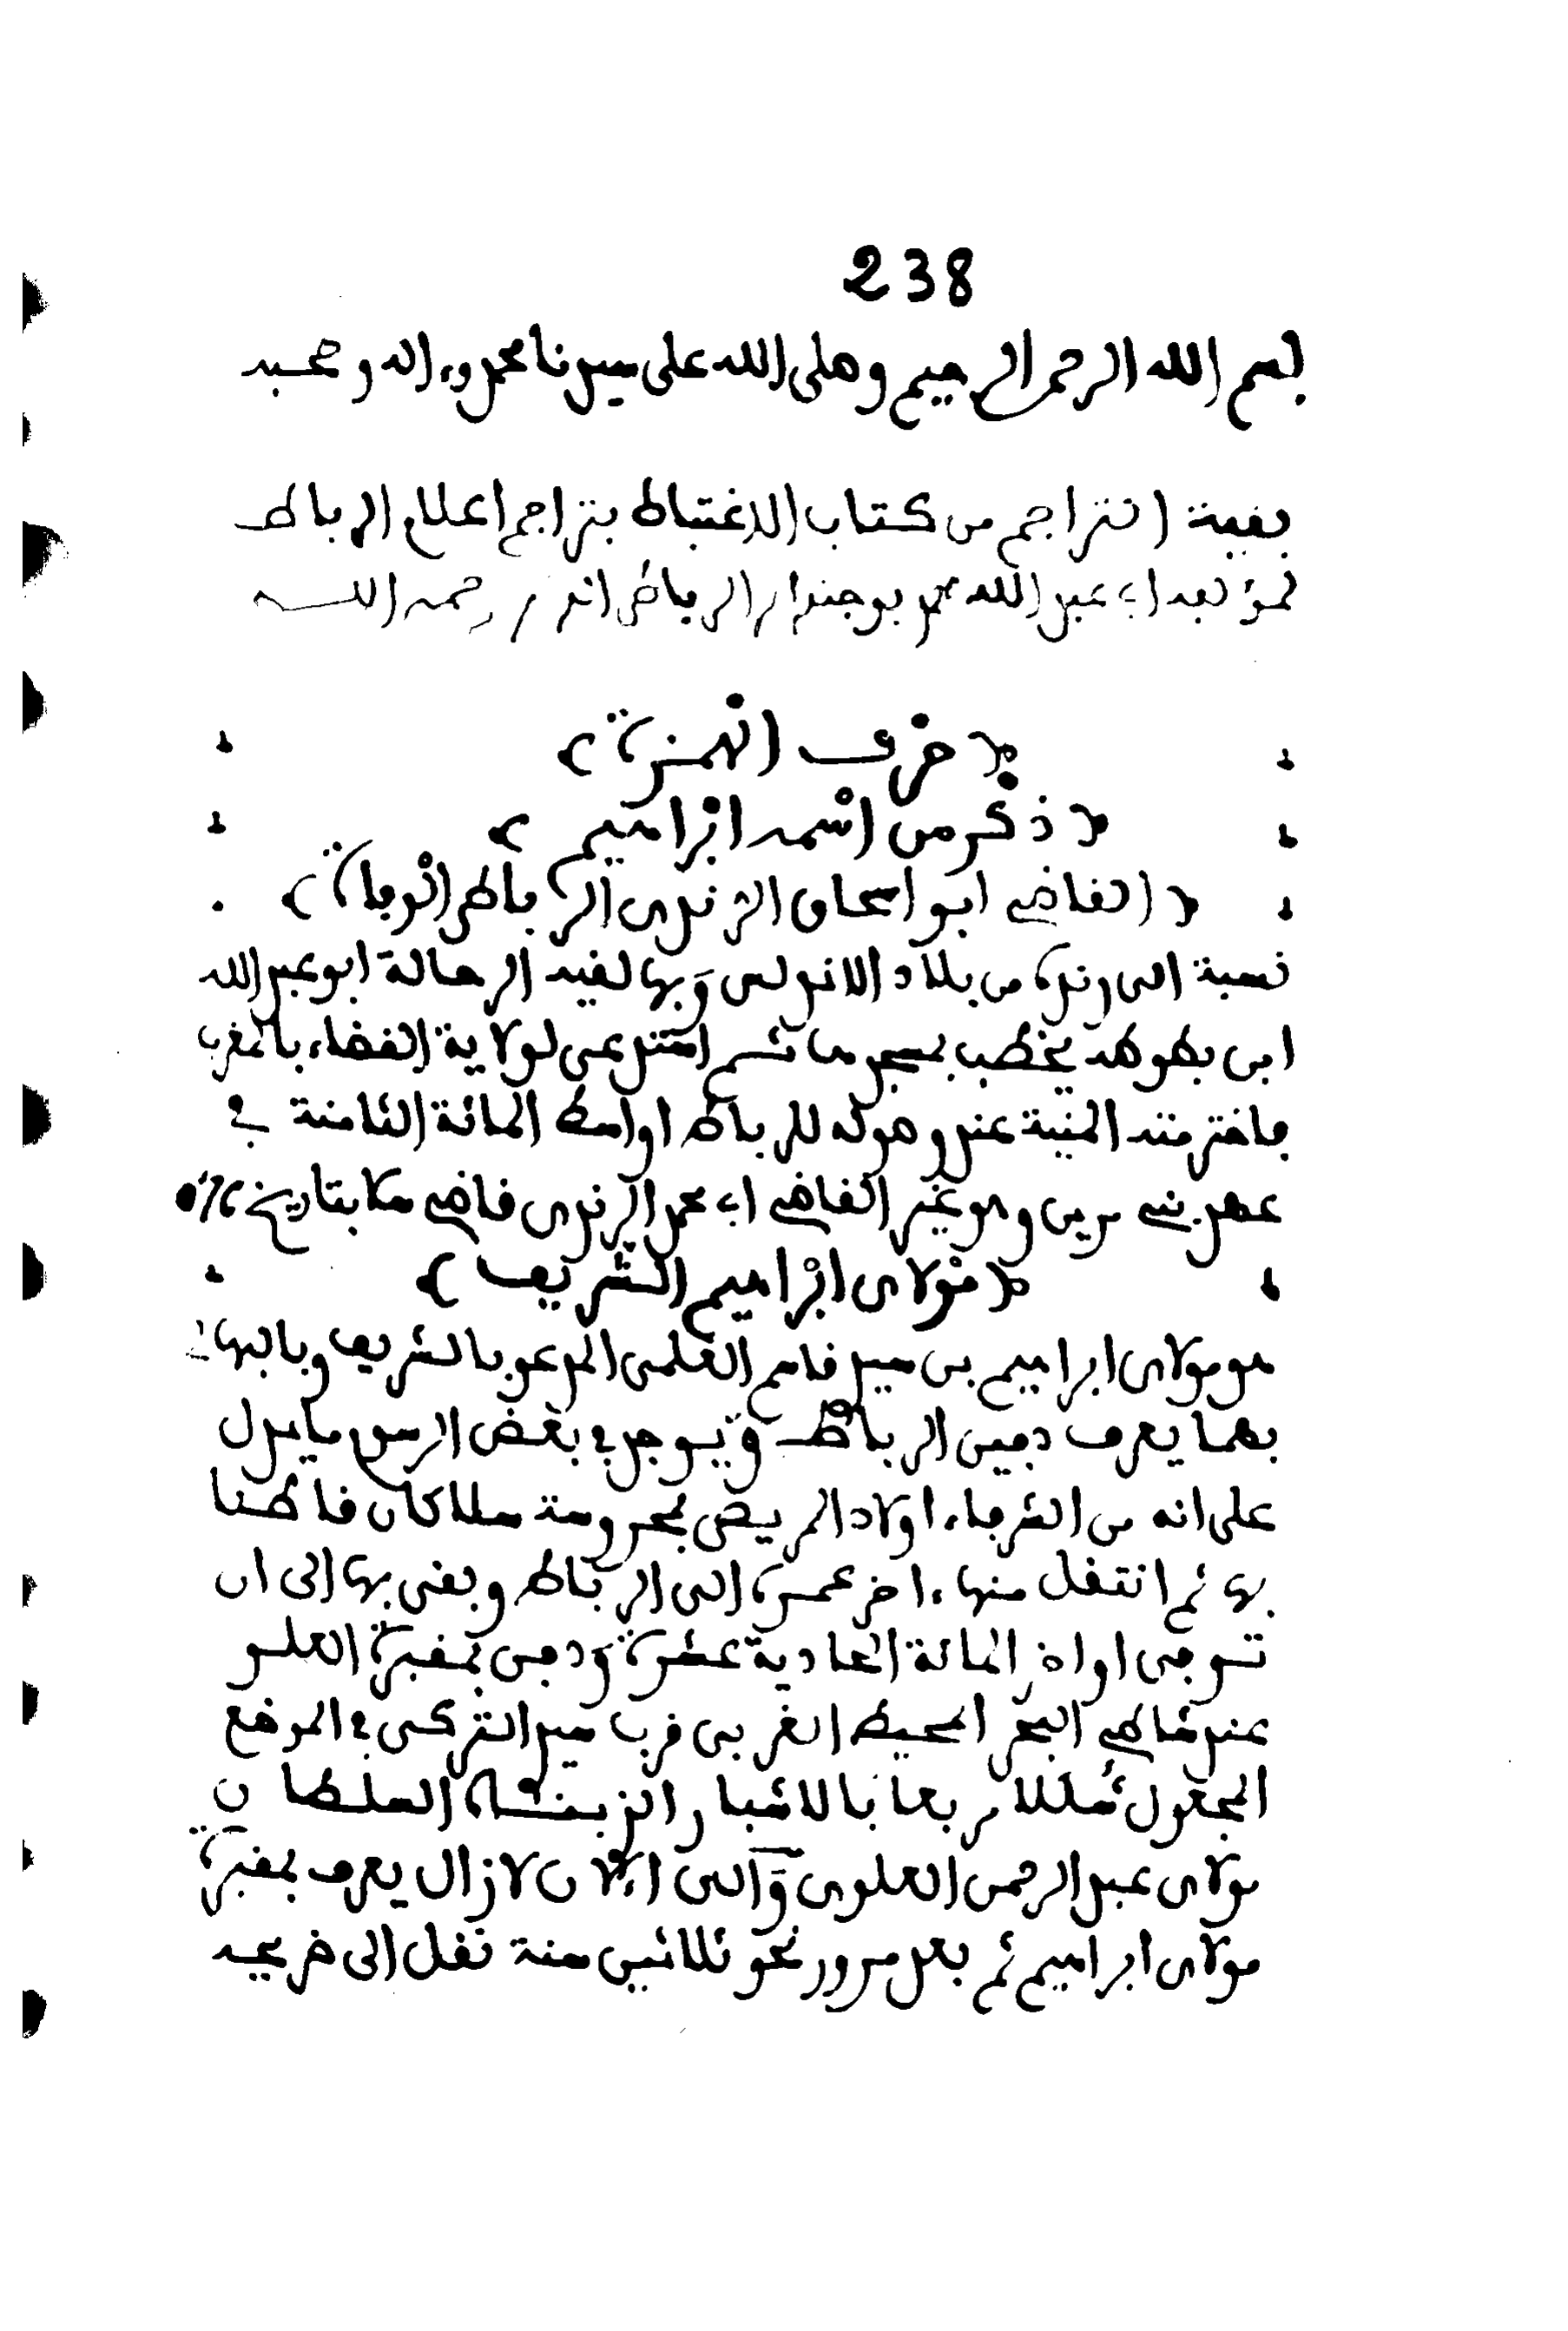 238
بسم الله الرحمن الرحيم وصلى الله على سيدنا محمد وءاله وصحبه
بقية التراجم من كتاب الاغتباط بتراجم اعلام الرباط
لمؤلفه ابي عبد الله محمد بوجندار الرباطي رحمه الله
﴿ حرف الهمزة ﴾
﴿ ذكر من اسمه ابراهيم ﴾
﴿ القاضي ابو اسحاق الرندي الرباطي الوفاة ﴾
نسبة الى رندة من بلاد الاندلس وبها لقيه الرحالة ابو عبد الله
ابن بطوطة يخطب بمسجدها ثم استدعى لولاية القضاء بالمغرب
فاخترمته المنية عند وصوله للرباط اواسط المائة الثامنة في
عصر بني مرين وهو غير القاضي ابي محمد الرندي قاضي سلا بتاريخ
﴿ مولاى ابراهيم الشريف ﴾
هو مولاى ابراهيم بن سيد قاسم العلمى المدعو بالشريف وبالبهالى
بهما يعرف دفين الرباط ويوجد في بعض الرسوم ما يدل
على انه من الشرفاء اولاد المريض بمحروسة سلا كان قاطنا
بها ثم انتقل منها ءاخر عمره الى الرباط وبقى بها الى ان
توفى اواخر المائة الحادية عشرة ودفن بمقبرة العلو
عند شاطئ البحر المحيط الغربى قرب سيد التركى في الموضع
المجعول شللا مربعا بالاشبار الذى بنشأه السلطان
مولاى عبد الرحمن العلوى والى الان لازال يعرف بمقبرة
مولاى ابراهيم ثم بعد مرور نحو ثلاثين سنة نقل الى ضريحه